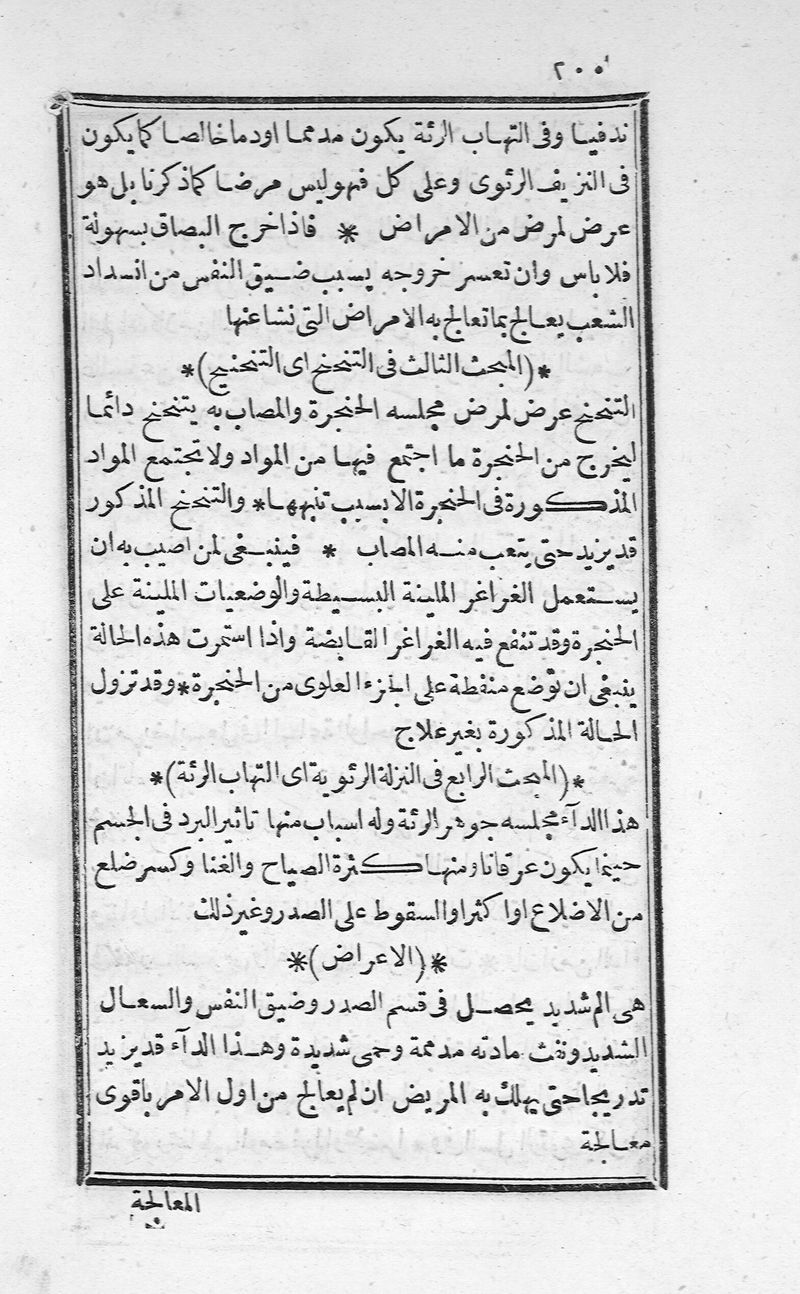 ٢٠٥
ندفيا وفى التهاب الرئة يكون مدمما او دما خالصا كما يكون
فى النزيف الرئوى وعلى كل فهو ليس مرضا كما ذكرنا بل هو
عرض لمرض من الامراض * فاذا خرج البصاق بسهولة
فلا باس وان تعسر خروجه بسبب ضيق النفس من انسداد
الشعب يعالج بما تعالج به الامراض التى نشا عنها
*(المبحث الثالث فى التنحنح اى التنحنيح)*
التنحنح عرض لمرض مجلسه الحنجرة والمصاب به يتنحنح دائما
ليخرج من الحنجرة ما اجتمع فيها من المواد ولا تجتمع المواد
المذكورة فى الحنجرة الا بسبب تنبهها * والتنحنح المذكور
قد يزيد حتى يتعب منه المصاب * فينبغى لمن اصيب به ان
يستعمل الغراغر الملينة البسيطة والوضعيات الملينة على
الحنجرة وقد تنفع فيه الغراغر القابضة واذا استمرت هذه الحالة
ينبغى ان توضع منفطة على الجزء العلوى من الحنجرة * وقد تزول
الحالة المذكورة بغير علاج
*(المبحث الرابع فى النزلة الرئوية اى التهاب الرئة)*
هذا الدآء مجلسه جوهر الرئة وله اسباب منها تاثير البرد فى الجسم
حينما يكون عرقانا ومنها كثرة الصياح والغنا وكسر ضلع
من الاضلاع او اكثر او السقوط على الصدر وغير ذلك
*(الاعراض)*
هى الم شديد يحصل فى قسم الصدر وضيق النفس والسعال
الشديد ونفث مادته مدممة وحمى شديدة وهذا الدآء قد يزيد
تدريجا حتى يهلك به المريض ان لم يعالج من اول الامر باقوى
معالجة
المعالجة